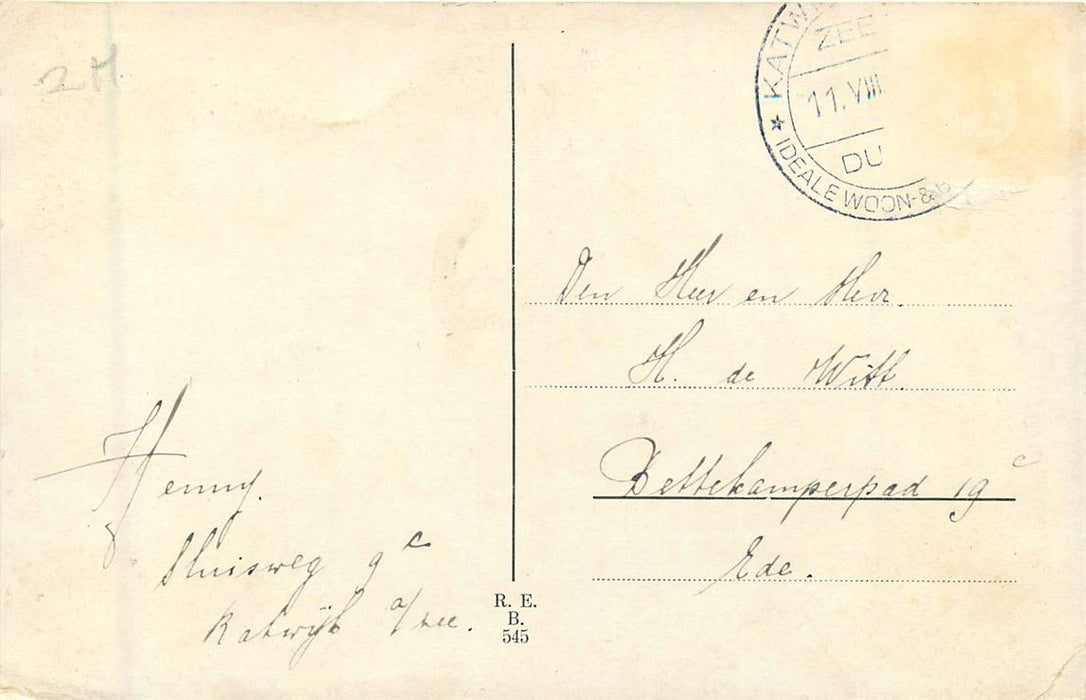 2 H
KATW
ZEE
11.VIII.
DU
★ IDEALE WOON- & B
Den Heer en Mevr.
H. de Witt.
Bettekamperpad 19c
Ede.
Henny.
Sluisweg 9c
Katwijk a/zee.
R. E.
B.
545